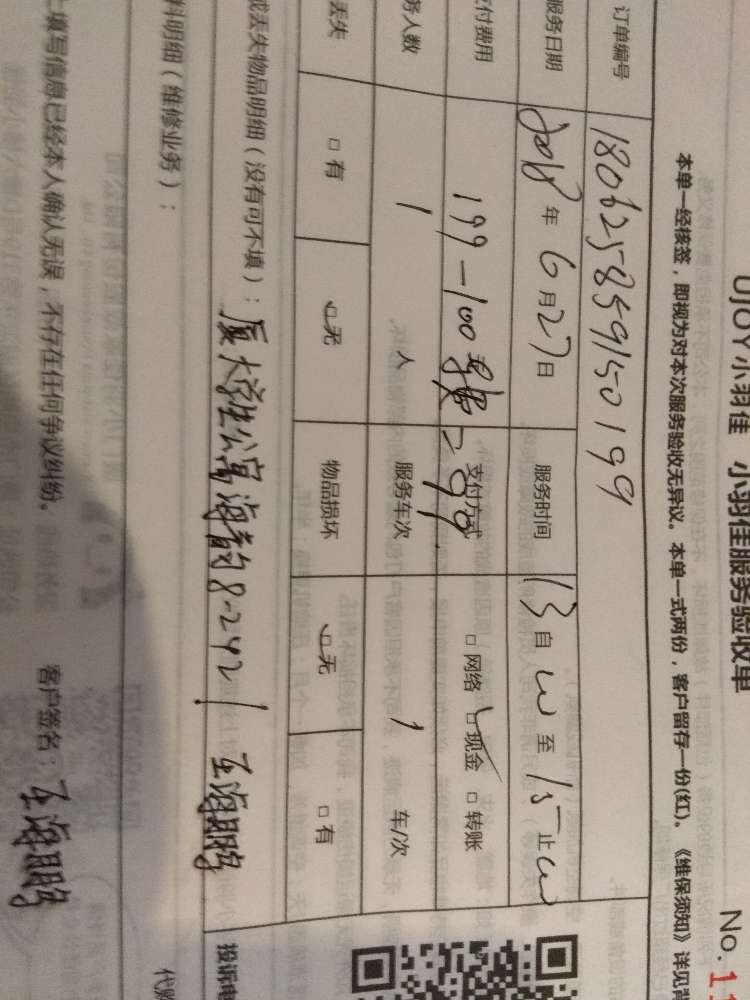 UJOY小羽佳 小羽佳服务验收单
No.1
本单一经核签，即视为对本次服务验收无异议。本单一式两份，客户留存一份(红)。《维保须知》详见背
订单编号 180625859150199
服务日期 2018年6月27日 服务时间 13自 至15止
付费用 199-100 =99 支付方式 □网络 □现金 □转账
务人数 1 人 服务车次 1 车/次
丢失 □有 □无 物品损坏 □无 □有
或丢失物品明细（没有可不填）：厦大学生公寓海韵8-242 王海鹏
料明细（维修业务）：
投诉电
代账
填写信息已经本人确认无误，不存在任何争议纠纷。 客户签名：王海鹏